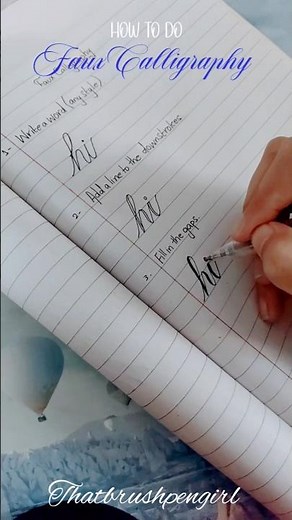 HOW TO DO
Faux Calligraphy
Faux Calligraphy
1- Write a word (any style)
hi
2- Add a line to the downstrokes
hi
3- Fill in the gaps.
hi
Thatbrushpengirl